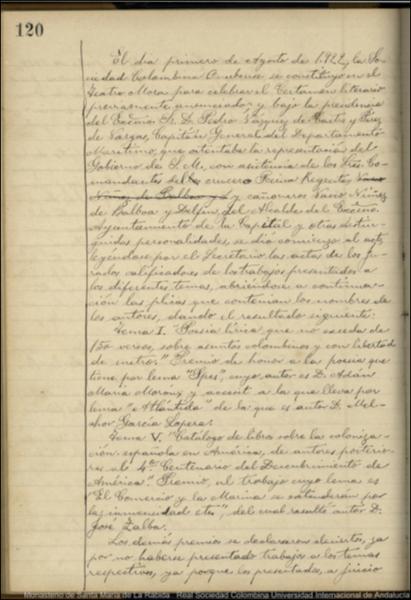 120
El dia primero de Agosto de 1.922, la So-
ciedad Colombina Onubense se constituyó en el
Teatro Mora para celebrar el Certamen literario
previamente anunciado y bajo la presidencia
del Excmo. Sr. D. Pedro Vázquez de Castro y Pérez
de Vargas, Capitán General del Departamento
Maritimo, que ostentaba la representación del
Gobierno de S. M., con asistencia de los Sres. Co-
mandantes del crucero Reina Regente, Vasco
Núñez de Balboa y y cañoneros Vasco Núñez
de Balboa y Delfin, del Alcalde del Excmo.
Ayuntamiento de la Capital y otras distin-
guidas personalidades, se dio comienzo al acto
leyéndose por el Secretario las actas de los Ju-
rados calificadores de los trabajos presentados a
los diferentes temas, abriéndose a continua-
ción las plicas que contenian los nombres de
los autores, dando el resultado siguiente:
Tema I. "Poesia lirica que no exceda de
150 versos, sobre asuntos colombinos y con libertad
de metro." Premio de honor a la poesia que
tiene por lema "Spes", cuyo autor es D. Adán
Maria y accesit a la que lleva por
lema "Atlántida" de la que es autor D. Mel-
chor Garcia
Tema V. "Catálogo de libros sobre la coloniza-
ción española en América, de autores posterio-
res al 4º Centenario del Descubrimiento de
América". Premio, al trabajo cuyo lema es
"El Comercio y la Marina se extenderán por
las inmensidad etc", del cual resultó autor D.
José Zalba.
Los demás premios se declararon desiertos, ya
por no haberse presentado trabajos a los temas
respectivos, ya porque los presentados, a juicio
Monasterio de Santa María de La Rábida   Real Sociedad Colombina   Universidad Internacional de Andalucía